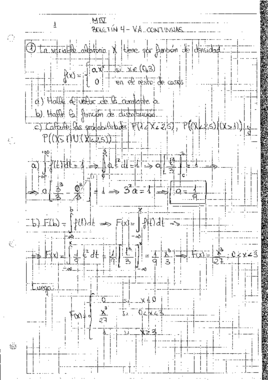 1
BOLETÍN 4 - V.A. CONTINUAS
① La variable aleatoria X tiene por función de densidad
f(x) = { ax² si x∈(0,3)
0 en otro caso
a) Halla el valor de la constante a.
b) Halla la función de distribución.
c) Calcula las probabilidades P(1<X<2,5), P((X<2,5)|(X>1)) y
a) ∫f(t)dt = 1 ⇒ a ∫t² dt = 1 ⇒ a[t³/3] = 1 ⇒
⇒ a[3³/3 - 0³/3] = 1 ⇒ 3²a = 1 ⇒ a = 1/9
b) F(x) = ∫f(t)dt ⇒ F(x) = ∫f(t)dt ⇒
⇒ F(x) = ∫1/9 t² dt = 1/9 [t³/3] = 1/9 x³/3 ⇒ F(x) = x³/27, 0<x<3
Luego:
F(x) = { 0 si x≤0
x³/27 si 0<x<3
1 si x≥3